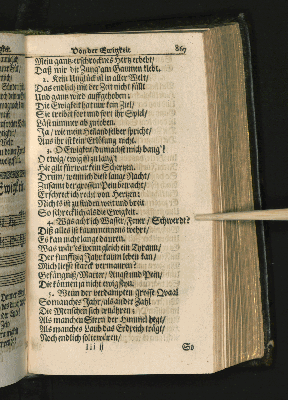 Von der Ewigkeit. 869
Mein gantz erschrocknes Hertz erbebt/
Daß mir die Zung am Gaumen klebt.
2. Kein Unglück ist in aller Welt/
Das endlich mit der Zeit nicht fällt
Und gantz wird auffgehoben:
Die Ewigkeit hat nur kein Ziel/
Sie treibet fort und fort ihr Spiel/
Läst nimmer ab zu toben.
Ja/ wie mein Heiland selber spricht/
Aus ihr ist kein Erlösung nicht.
3. O Ewigkeit du machst mir bang!
O ewig/ ewig ist zu lang!
Hie gilt fürwar kein Schertzen.
Drum/ wenn ich diese lange Nacht/
Zusamt der grossen Pein betracht/
Erschreck ich recht von Hertzen:
Nichts ist zu finden weit und breit
So schrecklich als die Ewigkeit.
4. Was acht ich Wasser/ Feuer/ Schwerdt?
Diß alles ist kaum nennens wehrt/
Es kan nicht lange dauren.
Was wär es wenn gleich ein Tyrann/
Der funfftzig Jahr kaum leben kan/
Mich ließe starck vermauren?
Gefängniß/ Marter/ Angst und Pein/
Die können ja nicht ewig seyn.
5. Wenn der verdampten grosse Qvaal
So manches Jahr/ als an der Zahl
Die Menschen sich ernähren:
Als manchen Stern der Himmel hegt/
Als manches Laub das Erdreich trägt/
Noch endlich solte wären/
Iii ij So